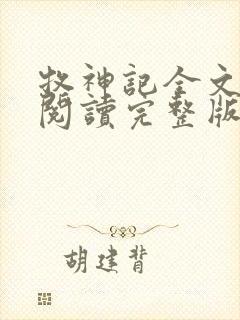 牧神記全文
閱讀完整版
胡建背